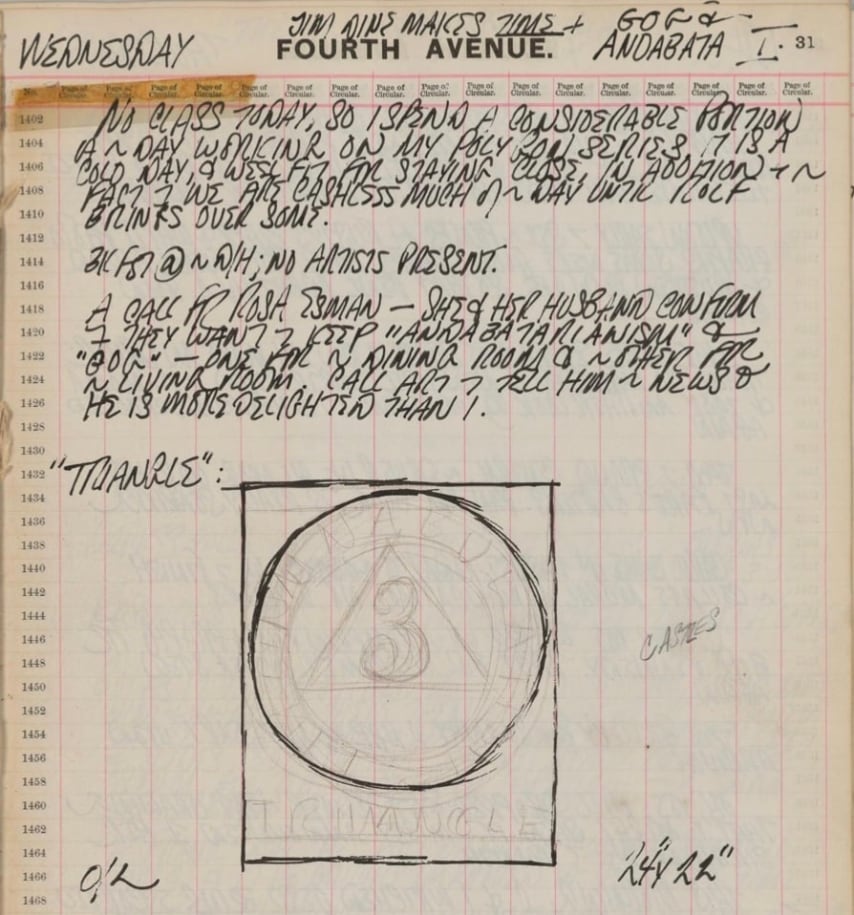 JIM DINE MAKES TIME + GOG &
WEDNESDAY FOURTH AVENUE. ANDABATA I. 31
No. Page of Circular. Page of Circular. Page of Circular. Page of Circular. Page of Circular. Page of Circular. Page of Circular. Page of Circular. Page of Circular. Page of Circular. Page of Circular. Page of Circular. Page of Circular. Page of Circular. Page of Circular. Page of Circular. Page of Circular.
1402 NO CLASS TODAY, SO I SPEND A CONSIDERABLE PORTION
1404 ~ DAY WORKING ON MY POLYGON SERIES. IT IS A
1406 COLD DAY, & FIT FOR STAYING CLOSE, IN ADDITION ~
1408 FACT WE ARE CASHLESS MUCH OF ~ DAY UNTIL ROLF
1410 BRINGS OVER SOME.
1412
1414 @ ~ D/H; NO ARTISTS PRESENT.
1416
1418 A CALL FR ROSA ESMAN — SHE & HER HUSBAND CONFIRM
1420 THEY WANT KEEP "ANDABATARIANISM" &
1422 "GOG" — ONE FOR ~ DINING ROOM & ~ OTHER FOR
1424 ~ LIVING ROOM. CALL ART TELL HIM ~ NEWS &
1426 HE IS MORE DELIGHTED THAN I.
1428
1430
1432 "TRIANGLE":
1434
1436
1438
1440
1442
1444
1446 3 CASTLES
1448
1450
1452
1454
1456
1458
1460
1462 TRIANGLE
1464
1466 O/C 24" X 22"
1468